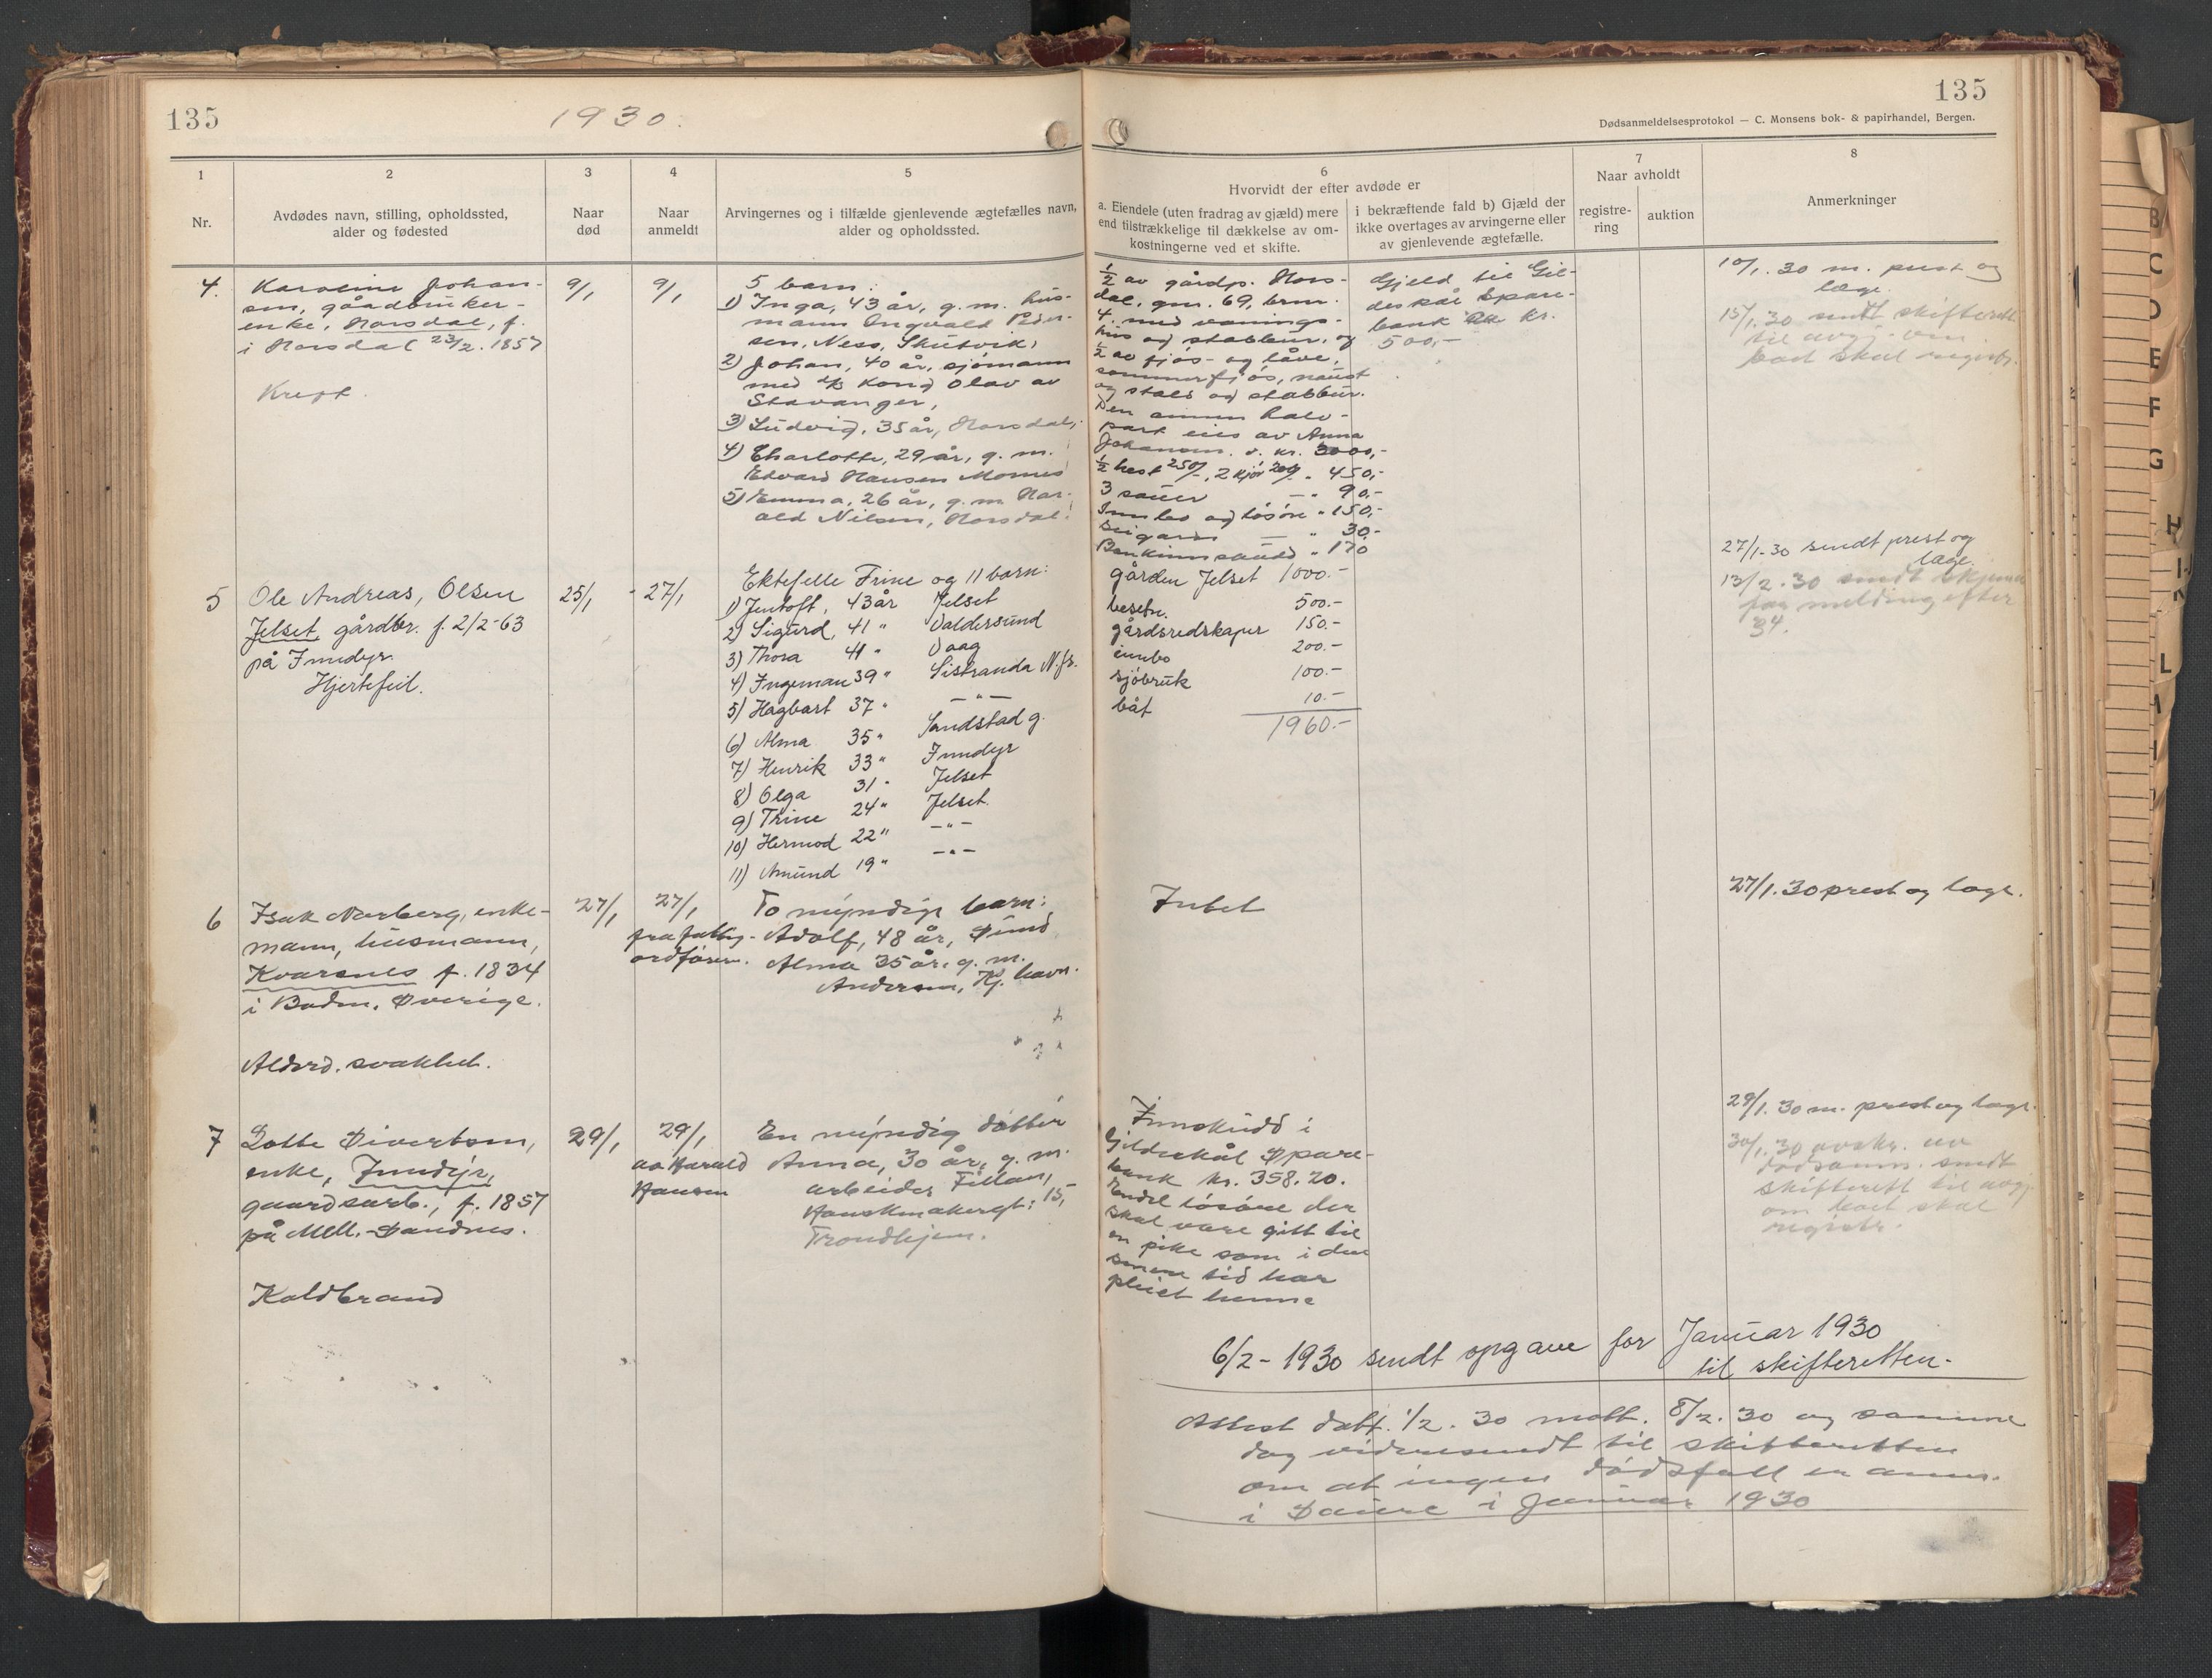 135
1930.
135
Dødsanmeldelsesprotokol — C. Monsens bok- & papirhandel, Bergen.
1
Nr.
2
Avdødes navn, stilling, opholdssted,
alder og fødested
3
Naar
død
4
Naar
anmeldt
5
Arvingernes og i tilfælde gjenlevende ægtefælles navn,
alder og opholdssted.
6
Hvorvidt der efter avdøde er
a. Eiendele (uten fradrag av gjæld) mere
end tilstrækkelige til dækkelse av om-
kostningerne ved et skifte.
i bekræftende fald b) Gjæld der
ikke overtages av arvingerne eller
av gjenlevende ægtefælle.
7
Naar avholdt
registre-
ring
auktion
8
Anmerkninger
4.
Karoline Johan-
sen, gårdbruker-
enke, Horsdal, f.
i Horsdal 23/2. 1857
Kreft.
9/1
9/1
5 barn:
1) Inga, 43 år, g. m. hus-
mann Ingvald Peder-
sen, Ness, Skutvik,
2) Johan, 40 år, sjømann
med d/s Kong Olav av
Stavanger,
3) Ludvig, 35 år, Horsdal,
4) Charlotte, 29 år, g. m.
Edvard Hansen Mornes
5) Emma, 26 år, g. m. Har-
ald Nilsen, Horsdal.
1/2 av gårdp. Hors-
dal, gnr. 69, brnr.
4. med vånings-
hus og stabbur, og
1/2 av fjøs- og låve,
sommerfjøs, naust
og stald og stabbur.
Den annen halv-
part eies av Anna
Johansen. v. kr. 3000,-
1/2 hest 250/-, 2 kjør 200/- " 450,-
3 sauer — " 90,-
Innbo og løsøre " 150,-
— " 30,-
Bankinnskudd " 170
Gjeld til Gil-
deskål Spare-
bank kr.
500,-
10/1. 30 m. prest og
læge.
15/1. 30 sendt skifterett
til avgj. om
boet skal registr.
5
Ole Andreas, Olsen
Jelset, gårdbr. f. 2/2-63
på Inndyr.
Hjertefeil.
25/1
27/1
Ektefelle Trine og 11 barn:
1) Jentoft, 43 år Jelset
2) Sigurd, 41 " Valdersund
3) Thora 41 " Vaag
4) Ingeman 39 " Sistranda N.fr.
5) Hagbart 37 " — " —
6) Alma 35 " Sandstad g.
7) Henrik 33 " Inndyr
8) Olga 31 " Jelset
9) Trine 24 " Jelset.
10) Hermod 22 " — " —
11) Amund 19 " — " —
gården Jelset 1000.-
besetn. 500.-
gårdsredskaper 150.-
innbo 200.-
sjøbruk 100.-
båt 10.-
1960.-
27/1-30 sendt prest og
læge.
13/2-30 sendt skjema
for melding efter
34.
6
Isak Norberg, enke-
mann, husmann,
Kvarsnes f. 1834
i Boden, Sverige.
Alderd. svakhet.
27/1
27/1
fra fattig-
ordfører.
To myndige barn:
Adolf, 48 år, Sund
Alma 35 år, g. m.
Andersen, Kj. havn.
Intet
27/1. 30 prest og læge.
7
Lotte Sivertsen,
enke, Inndyr,
gaardsarb., f. 1857
på Mell.-Sandnes.
Koldbrand
29/1
29/1
av Harald
Hansen
En myndig datter
Anna, 30 år, g. m.
arbeider Fillan,
Hanskmakergt. 15,
Trondhjem.
Innskudd i
Gildeskål Spare-
bank kr. 358.20.
Endel løsøre der
skal være gitt til
en pike som i den
senere tid har
pleiet henne
29/1. 30 m. prest og læge.
30/1. 30 avskr. av
dødsanm. sendt
skifterett til avgj.
om boet skal
registr.
6/2 - 1930 sendt opgave for Januar 1930
til skifteretten.
Attest datt. 1/2. 30 mott. 8/2. 30 og samme
dag videresendt til skifteretten
om at ingen dødsfall er anm.
i Saura i Januar 1930
B
C
D
E
F
G
H
L